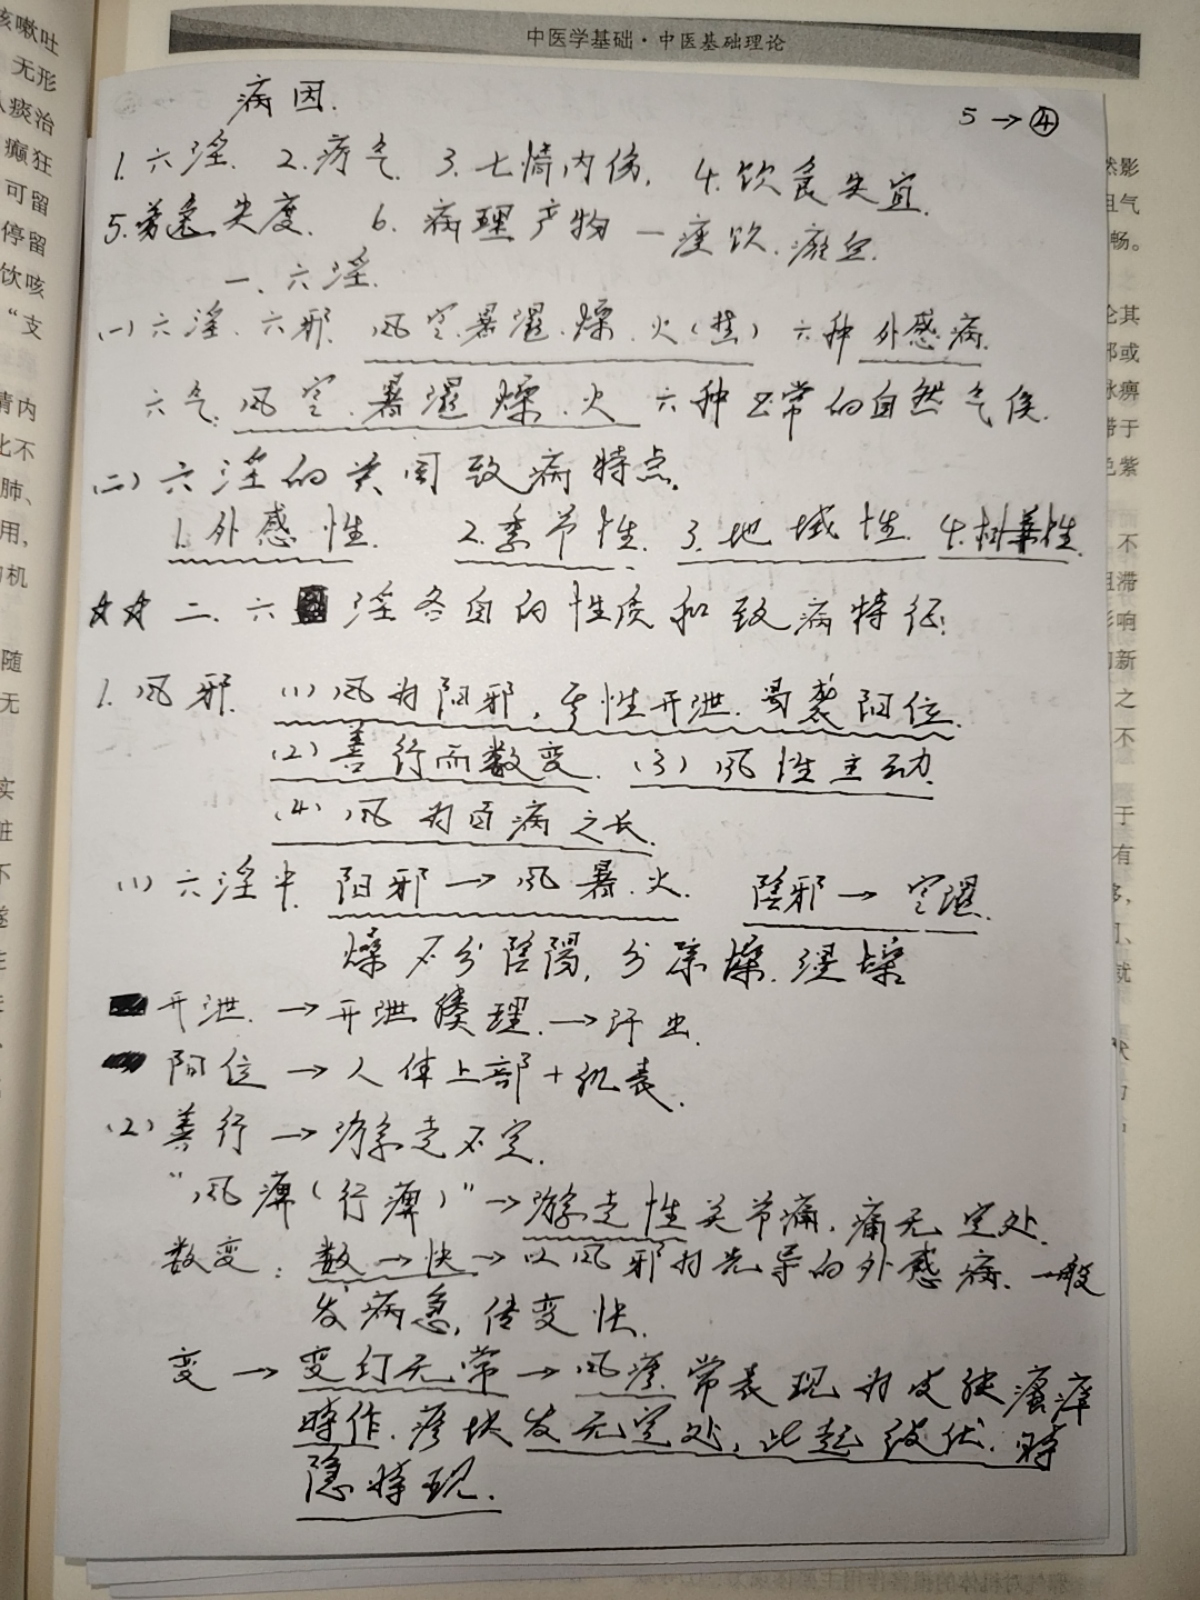 中医学基础·中医基础理论
病因.
5→④
1.六淫. 2.疠气. 3.七情内伤. 4.饮食失宜.
5.劳逸失度. 6.病理产物—痰饮.瘀血.
一、六淫.
(一)六淫.六邪.风寒.暑湿.燥.火(热)六种外感病.
六气.风寒.暑湿燥.火 六种正常的自然气候.
(二)六淫的共同致病特点.
1.外感性. 2.季节性. 3.地域性. 4.相兼性.
☆☆ 二.六淫各自的性质和致病特征:
1.风邪. (1)风为阳邪,其性开泄.易袭阳位.
(2)善行而数变. (3)风性主动.
(4)风为百病之长.
(1)六淫中.阳邪→风暑.火. 陰邪→寒湿.
燥不分陰陽,分凉燥.温燥
开泄.→开泄腠理.→汗出.
阳位→人体上部+肌表.
(2)善行→游走不定.
“风痹(行痹)”→游走性关节痛.痛无定处.
数变:数→快→以风邪为先导的外感病.一般
发病急,传变快.
变→变幻无常→风疹.常表现为皮肤瘙痒
時作.疹块发无定处,此起彼伏.時
隐時现.